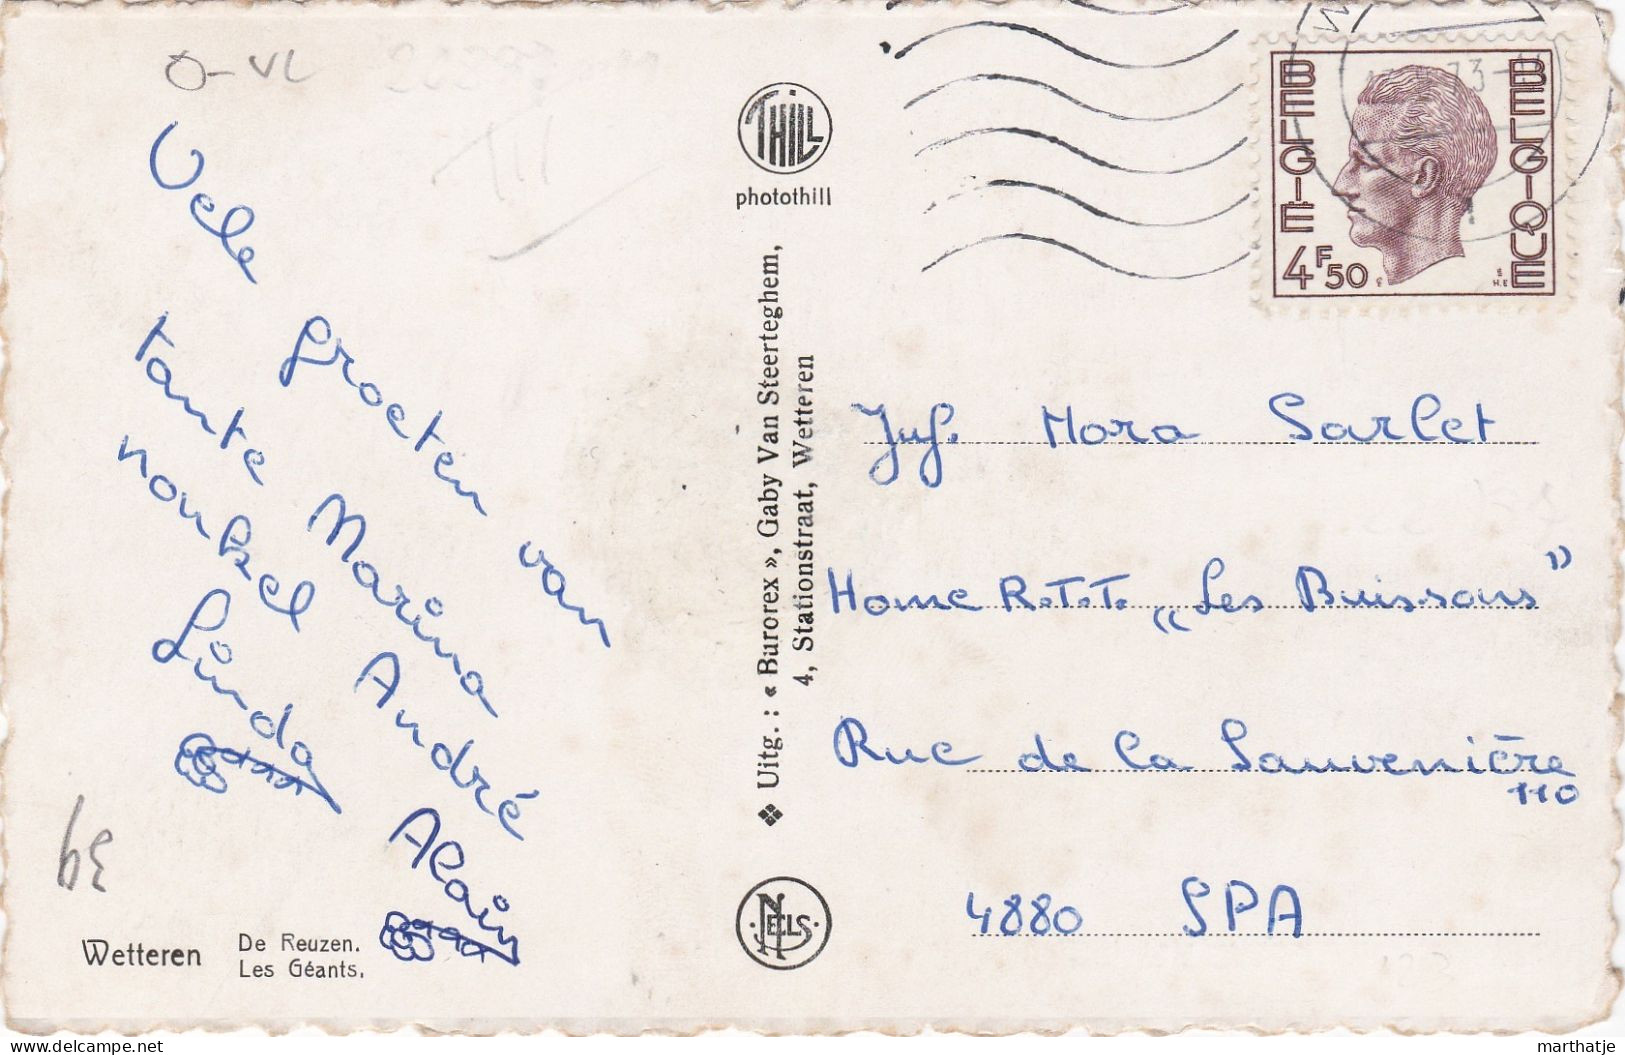 O-VL
Vele groeten van
tante Marina
nonkel André
Linda
Alain
39
Wetteren
De Reuzen.
Les Géants.
THILL
photothill
❖ Uitg. : « Burorex », Gaby Van Steerteghem,
4, Stationstraat, Wetteren
NELS
BELGIË
BELGIQUE
4F50
Juf. Mora Sarlet
Home R.T.T. „Les Buissons”
Rue de la Sauvenière
110
4880 SPA
delcampe.net
marthatje